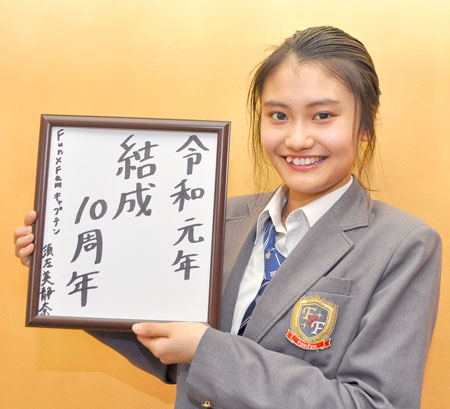 令和元年
結成
10周年
FunxFamキャプテン 須左美静奈
FF